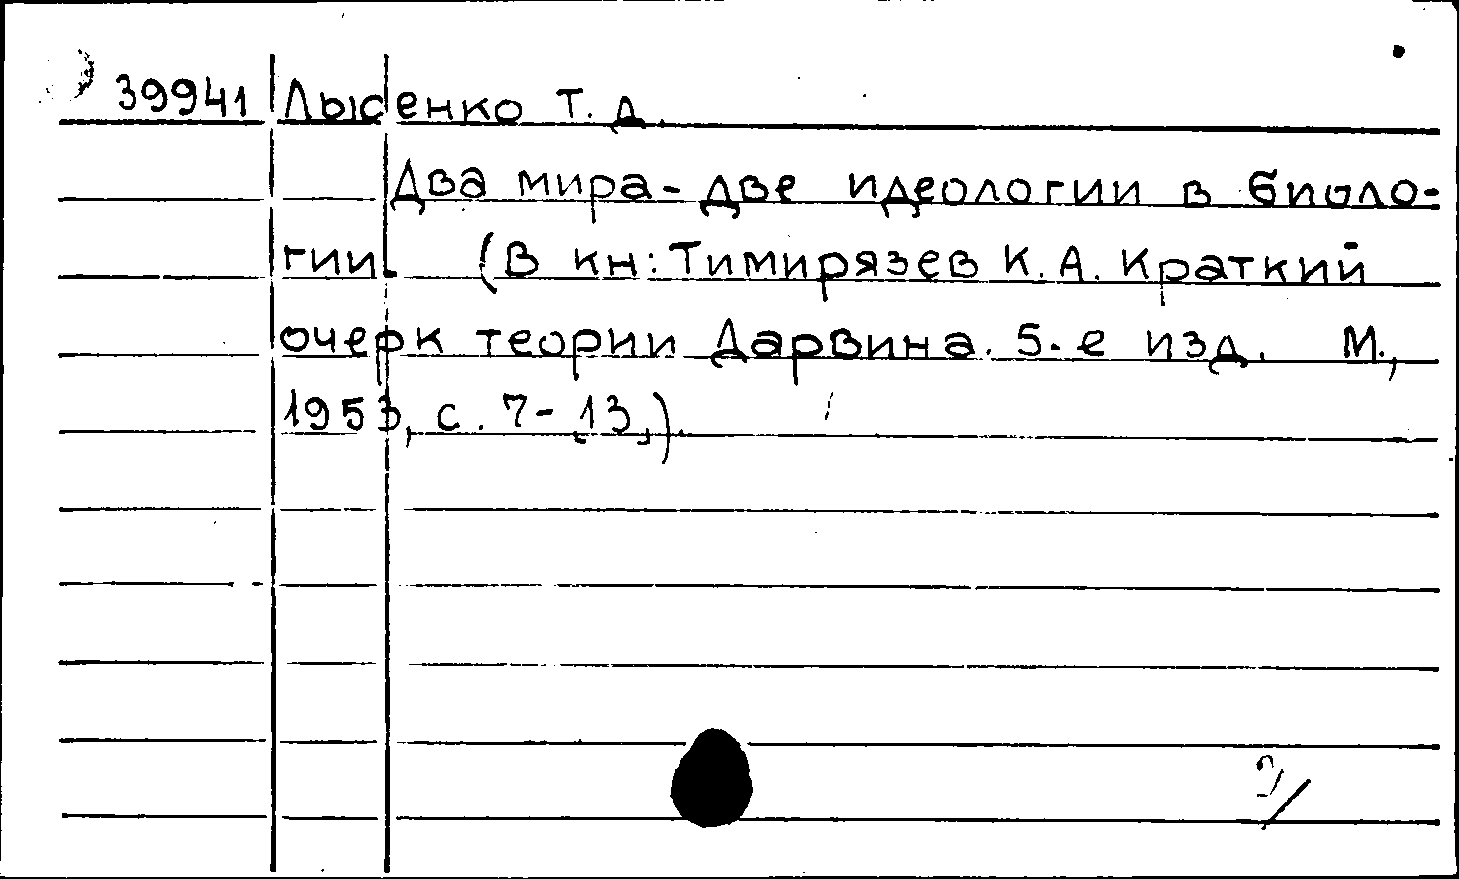 39941 Лысенко Т. Д.
Два мира - две идеологии в биоло-
гии. (В кн: Тимирязев К. А. Краткий
очерк теории Дарвина. 5-е изд. М.,
1953, с. 7-13,).